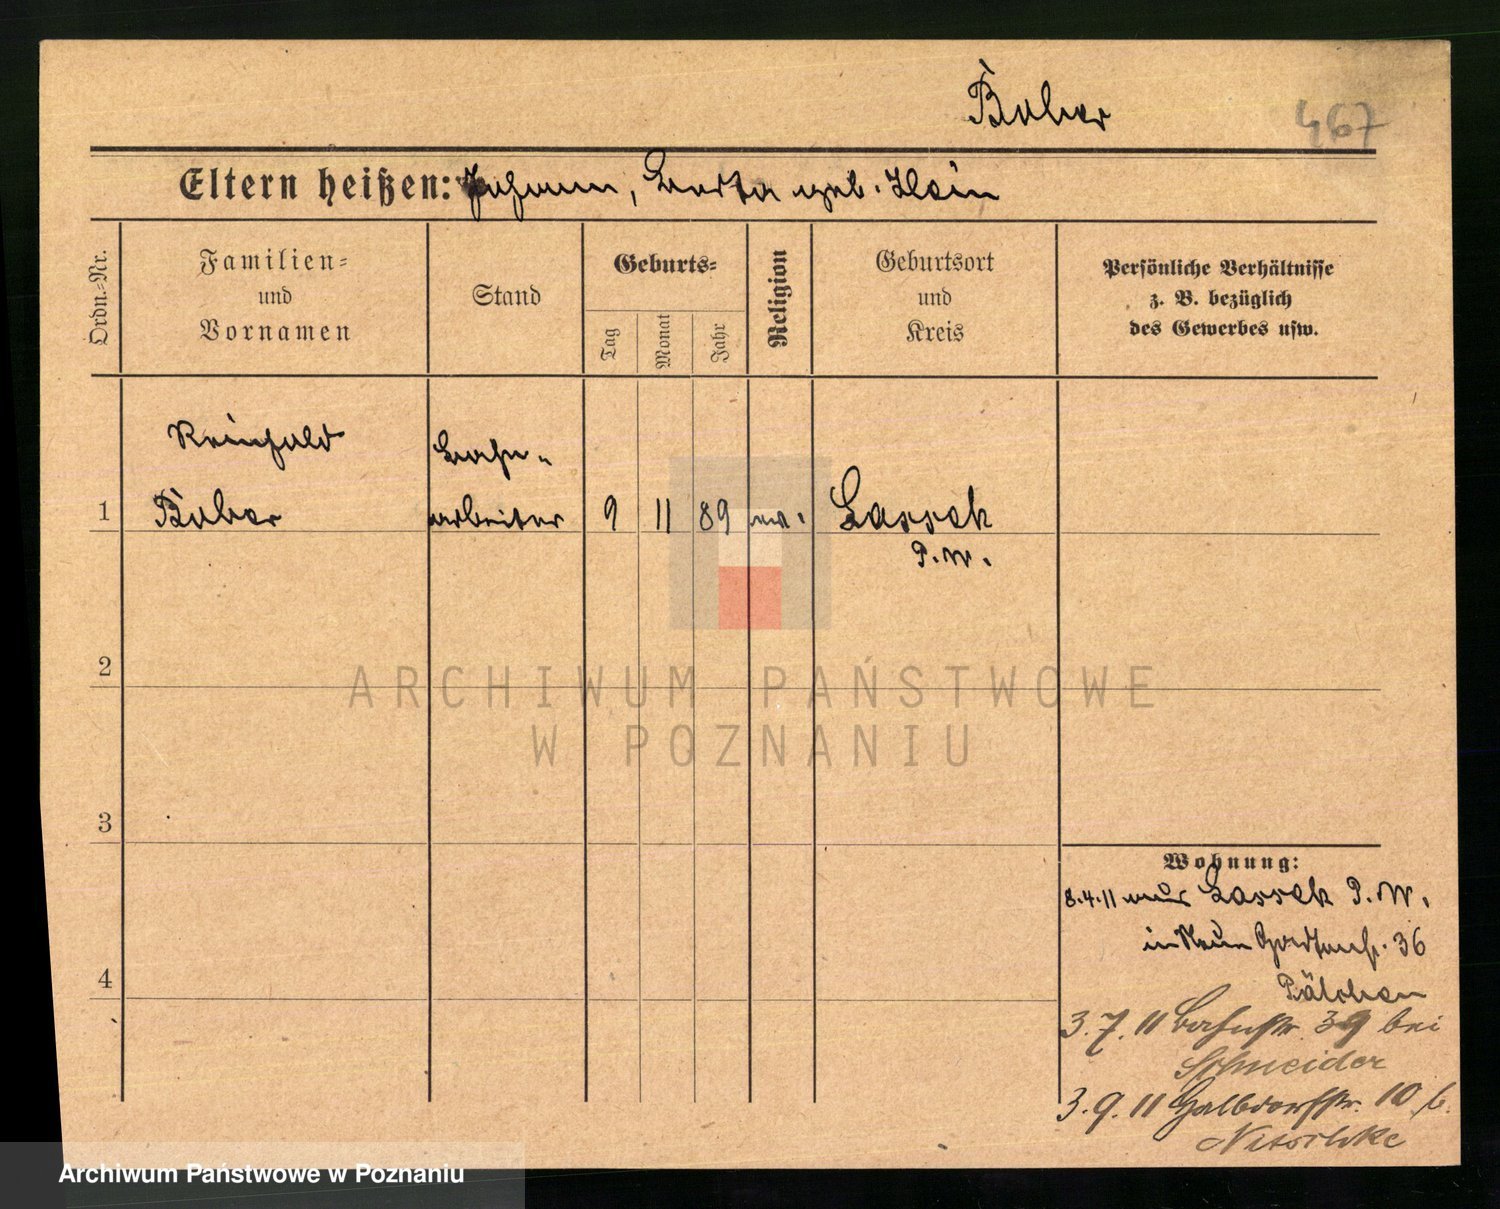 Bober
467
Eltern heißen: Johann, Berta geb. Klein
Ordn.-Nr.
Familien-
und
Vornamen
Stand
Geburts-
Tag
Monat
Jahr
Religion
Geburtsort
und
Kreis
Persönliche Verhältnisse
z. B. bezüglich
des Gewerbes usw.
Reinhold
Bahn-
1 Bober arbeiter 9 11 89 Lassek
P.W.
2
3
4
Wohnung:
8.4.11 aus Lassek P.W.
36
3.7.11 Bahnstr. 39 bei
Schneider
3.9.11 Halbdorfstr. 10 b.
Nitschke
ARCHIWUM PAŃSTWOWE
W POZNANIU
Archiwum Państwowe w Poznaniu